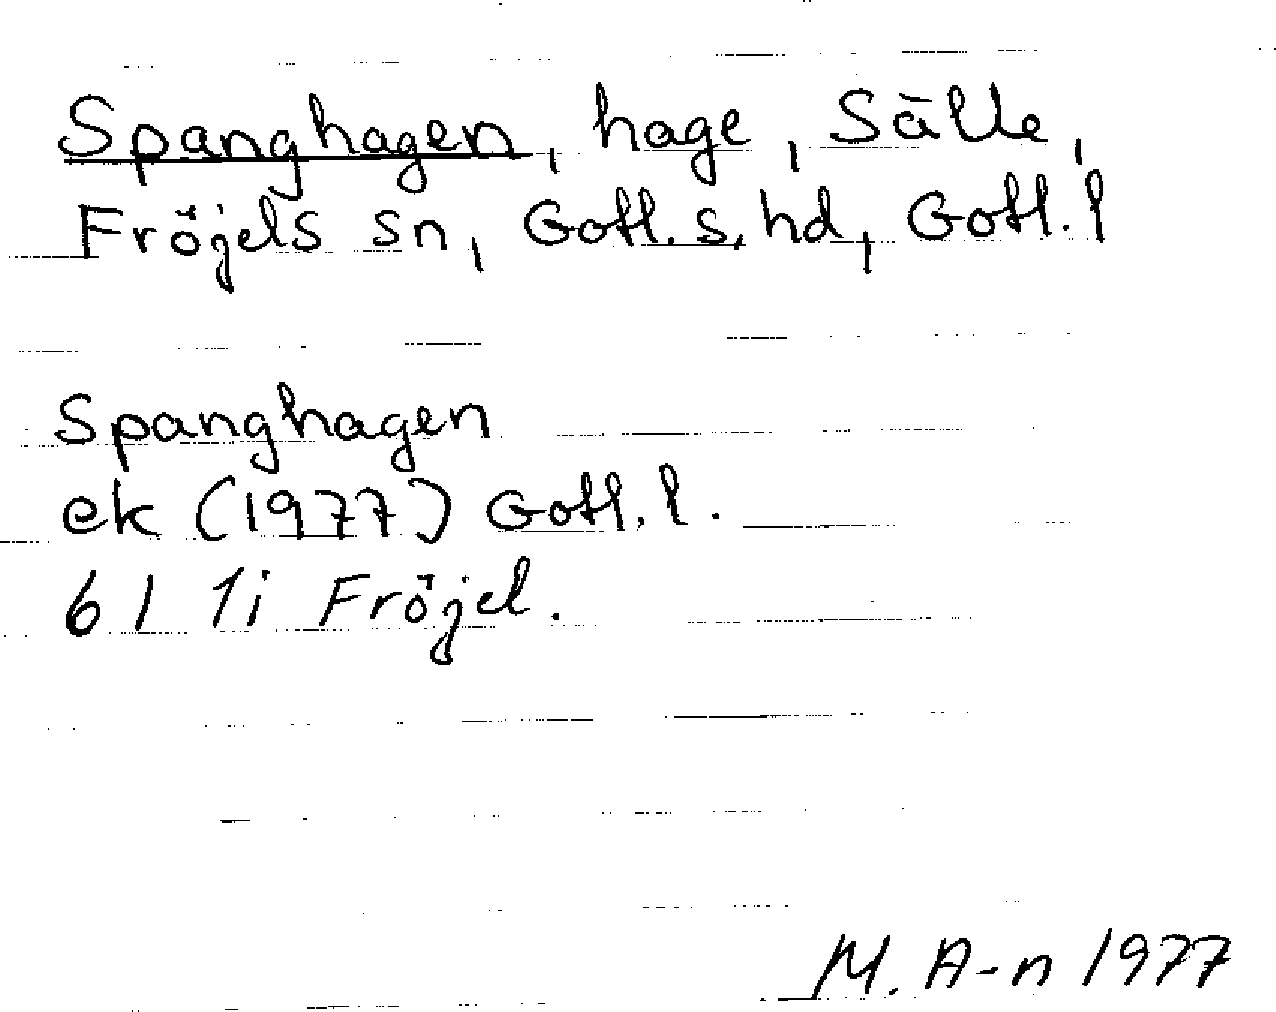 Spanghagen, hage, Sälle,
Fröjels sn, Gotl. s. hd, Gotl. l
Spanghagen
ek (1977) Gotl. l.
6 I 1i Fröjel.
M. A-n 1977